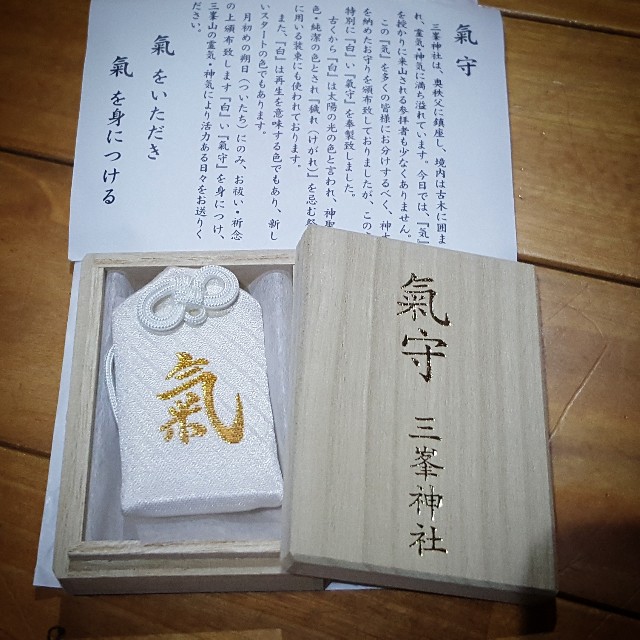 氣守
三峯神社は、奥秩父に鎮座し、境内は古木に囲ま
れ、霊気・神気に満ち溢れています。今日では、『気』
を授かりに来山される参拝者も少なくありません。
この『気』を多くの皆様にお分けするべく、神木
を納めたお守りを頒布致しておりましたが、この
特別に『白』い『氣守』を奉製致しました。
古くから『白』は太陽の光の色と言われ、神聖
色・純潔の色とされ『穢れ(けがれ)』を忌む祭
に用いる装束にも使われております。
また、『白』は再生を意味する色でもあり、新し
いスタートの色でもあります。
月初めの朔日(ついたち)にのみ、お祓い・祈念
の上頒布致します『白』い『氣守』を身につけ、
三峯山の霊気・神気により活力ある日々をお送りく
ださい。
氣をいただき
氣を身につける
氣
氣守
三峯神社